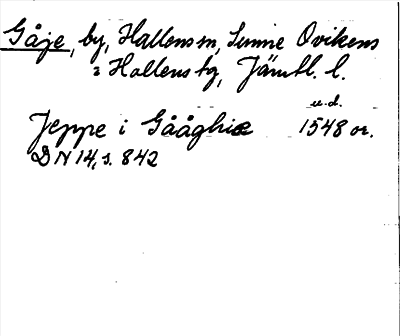 Gåje, by, Hallens sn, Sunne Ovikens
o Hallens tg, Jämtl. l.
u.d.
Jeppe i Gååghiæ 1548 or.
DN 14, s. 842